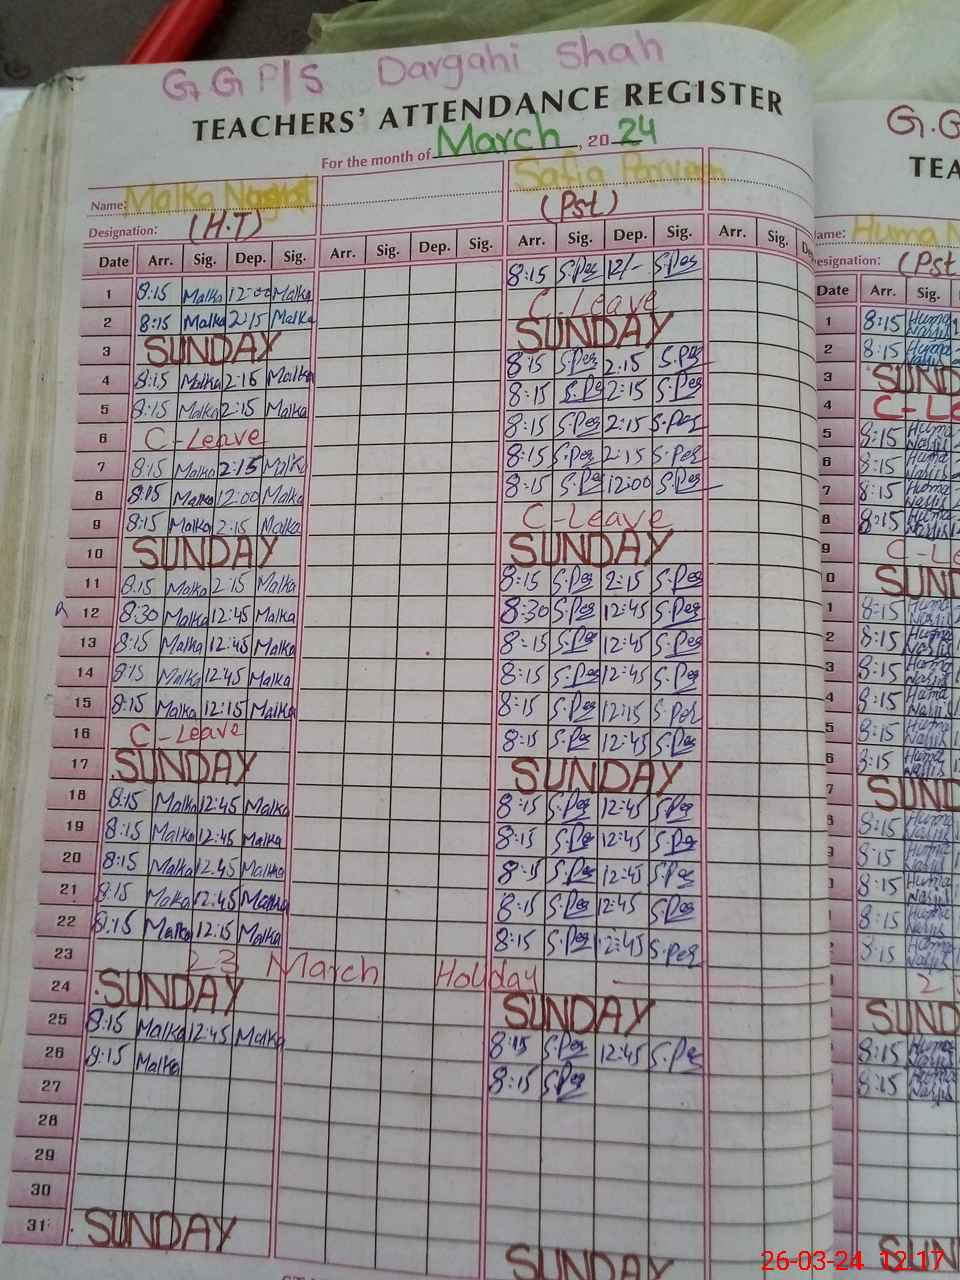 G.G P/S Dargahi Shah
TEACHERS' ATTENDANCE REGISTER
G.G
For the month of March, 2024
TEA
Name: Malka Safia Parveen
Designation: (H.T) (Pst)
Name: Huma N
esignation: (Pst
Date Arr. Sig. Dep. Sig. Arr. Sig. Dep. Sig. Arr. Sig. Dep. Sig. Arr. Sig. De Date Arr. Sig.
1 8:15 Malka 12:00 Malka 8:15 S.Per 12/- S.Per 1 8:15 Huma
2 8:15 Malka 2:15 Malka C.Leave 2 8:15 Huma
3 SUNDAY SUNDAY 3 SUND
4 8:15 Malka 2:15 Malka 8:15 S.Per 2:15 S.Per 4 C-Le
5 8:15 Malka 2:15 Malka 8:15 S.Per 2:15 S.Per 5 8:15 Huma
6 C-Leave 8:15 S.Per 2:15 S.Per 6 8:15 Huma
7 8:15 Malka 2:15 Malka 8:15 S.Per 2:15 S.Per 7 8:15 Huma
8 8:15 Malka 12:00 Malka 8:15 S.Per 12:00 S.Per 8 8:15 Huma
9 8:15 Malka 2:15 Malka C-Leave 9 C-Le
10 SUNDAY SUNDAY 0 SUND
11 8:15 Malka 2:15 Malka 8:15 S.Per 2:15 S.Per 1 8:15 Huma
12 8:30 Malka 12:45 Malka 8:30 S.Per 12:45 S.Per 2 8:15 Huma
13 8:15 Malka 12:45 Malka 8:15 S.Per 12:45 S.Per 3 8:15 Huma
14 8:15 Malka 12:45 Malka 8:15 S.Per 12:45 S.Per 4 8:15 Huma
15 8:15 Malka 12:15 Malka 8:15 S.Per 12:15 S.Per 5 8:15 Huma
16 C-Leave 8:15 S.Per 12:45 S.Per 6 8:15 Huma
17 SUNDAY SUNDAY 7 SUND
18 8:15 Malka 12:45 Malka 8:15 S.Per 12:45 S.Per 8:15 Huma
19 8:15 Malka 12:45 Malka 8:15 S.Per 12:45 S.Per 8:15 Huma
20 8:15 Malka 12.45 Malka 8:15 S.Per 12:45 S.Per 8:15 Huma
21 8:15 Malka 12:45 Malka 8:15 S.Per 12:45 S.Per 8:15 Huma
22 8:15 Malka 12:15 Malka 8:15 S.Per 12:45 S.Per 8:15 Huma
23 23 March Holiday 2
24 SUNDAY SUNDAY SUND
25 8:15 Malka 12:45 Malka 8:15 S.Per 12:45 S.Per 8:15 Huma
26 8:15 Malka 8:15 S.Per 8:15 Huma
27
28
29
30
31 SUNDAY SUNDAY SUN
26-03-24 12:17